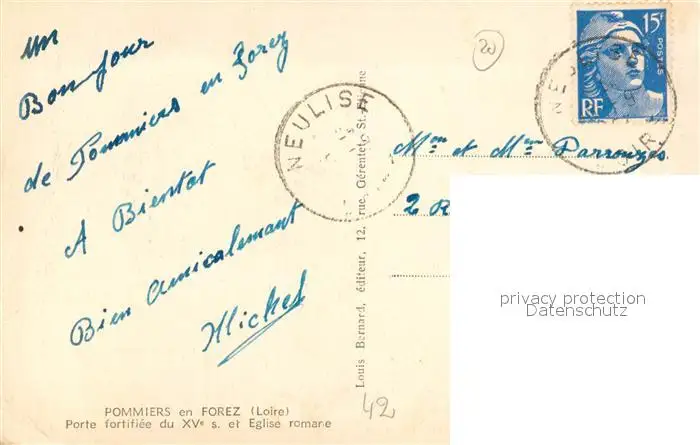 un
Bonjour
de Pommiers en Forez
A Bientot
Bien Amicalemant
Michel
POMMIERS en FOREZ (Loire)
Porte fortifiée du XVe s. et Eglise romane
Louis Bernard, éditeur, 12, rue Gérentet, St. Etienne
NEULISE
20
15F
POSTES
RF
Mm et Mm Parrouzes
2 R
42
privacy protection
Datenschutz